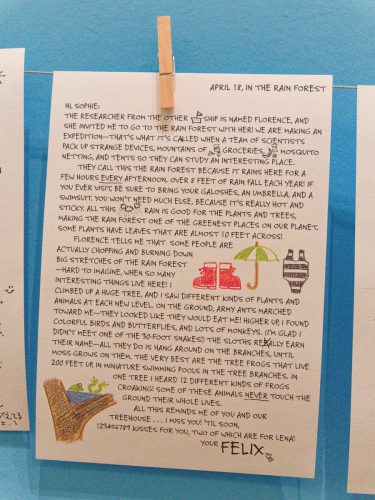 APRIL 18, IN THE RAIN FOREST
HI, SOPHIE:
THE RESEARCHER FROM THE OTHER SHIP IS NAMED FLORENCE, AND
SHE INVITED ME TO GO TO THE RAIN FOREST WITH HER! WE ARE MAKING AN
EXPEDITION—THAT'S WHAT IT'S CALLED WHEN A TEAM OF SCIENTISTS
PACK UP STRANGE DEVICES, MOUNTAINS OF GROCERIES, MOSQUITO
NETTING, AND TENTS SO THEY CAN STUDY AN INTERESTING PLACE.
THEY CALL THIS THE RAIN FOREST BECAUSE IT RAINS HERE FOR A
FEW HOURS EVERY AFTERNOON. OVER 8 FEET OF RAIN FALL EACH YEAR! IF
YOU EVER VISIT, BE SURE TO BRING YOUR GALOSHES, AN UMBRELLA, AND A
SWIMSUIT. YOU WON'T NEED MUCH ELSE, BECAUSE IT'S REALLY HOT AND
STICKY. ALL THIS RAIN IS GOOD FOR THE PLANTS AND TREES,
MAKING THE RAIN FOREST ONE OF THE GREENEST PLACES ON OUR PLANET.
SOME PLANTS HAVE LEAVES THAT ARE ALMOST 10 FEET ACROSS!
FLORENCE TELLS ME THAT SOME PEOPLE ARE
ACTUALLY CHOPPING AND BURNING DOWN
BIG STRETCHES OF THE RAIN FOREST
—HARD TO IMAGINE, WHEN SO MANY
INTERESTING THINGS LIVE HERE! I
CLIMBED UP A HUGE TREE, AND I SAW DIFFERENT KINDS OF PLANTS AND
ANIMALS AT EACH NEW LEVEL. ON THE GROUND, ARMY ANTS MARCHED
TOWARD ME—THEY LOOKED LIKE THEY WOULD EAT ME! HIGHER UP, I FOUND
COLORFUL BIRDS AND BUTTERFLIES, AND LOTS OF MONKEYS. (I'M GLAD I
DIDN'T MEET ONE OF THE 30-FOOT SNAKES!) THE SLOTHS REALLY EARN
THEIR NAME—ALL THEY DO IS HANG AROUND ON THE BRANCHES, UNTIL
MOSS GROWS ON THEM. THE VERY BEST ARE THE TREE FROGS THAT LIVE
200 FEET UP, IN MINIATURE SWIMMING POOLS IN THE TREE BRANCHES. IN
ONE TREE I HEARD 12 DIFFERENT KINDS OF FROGS
CROAKING! SOME OF THESE ANIMALS NEVER TOUCH THE
GROUND THEIR WHOLE LIVES.
ALL THIS REMINDS ME OF YOU AND OUR
TREEHOUSE . . . I MISS YOU! 'TIL SOON,
123456789 KISSES FOR YOU, TWO OF WHICH ARE FOR LENA!
YOUR FELIX